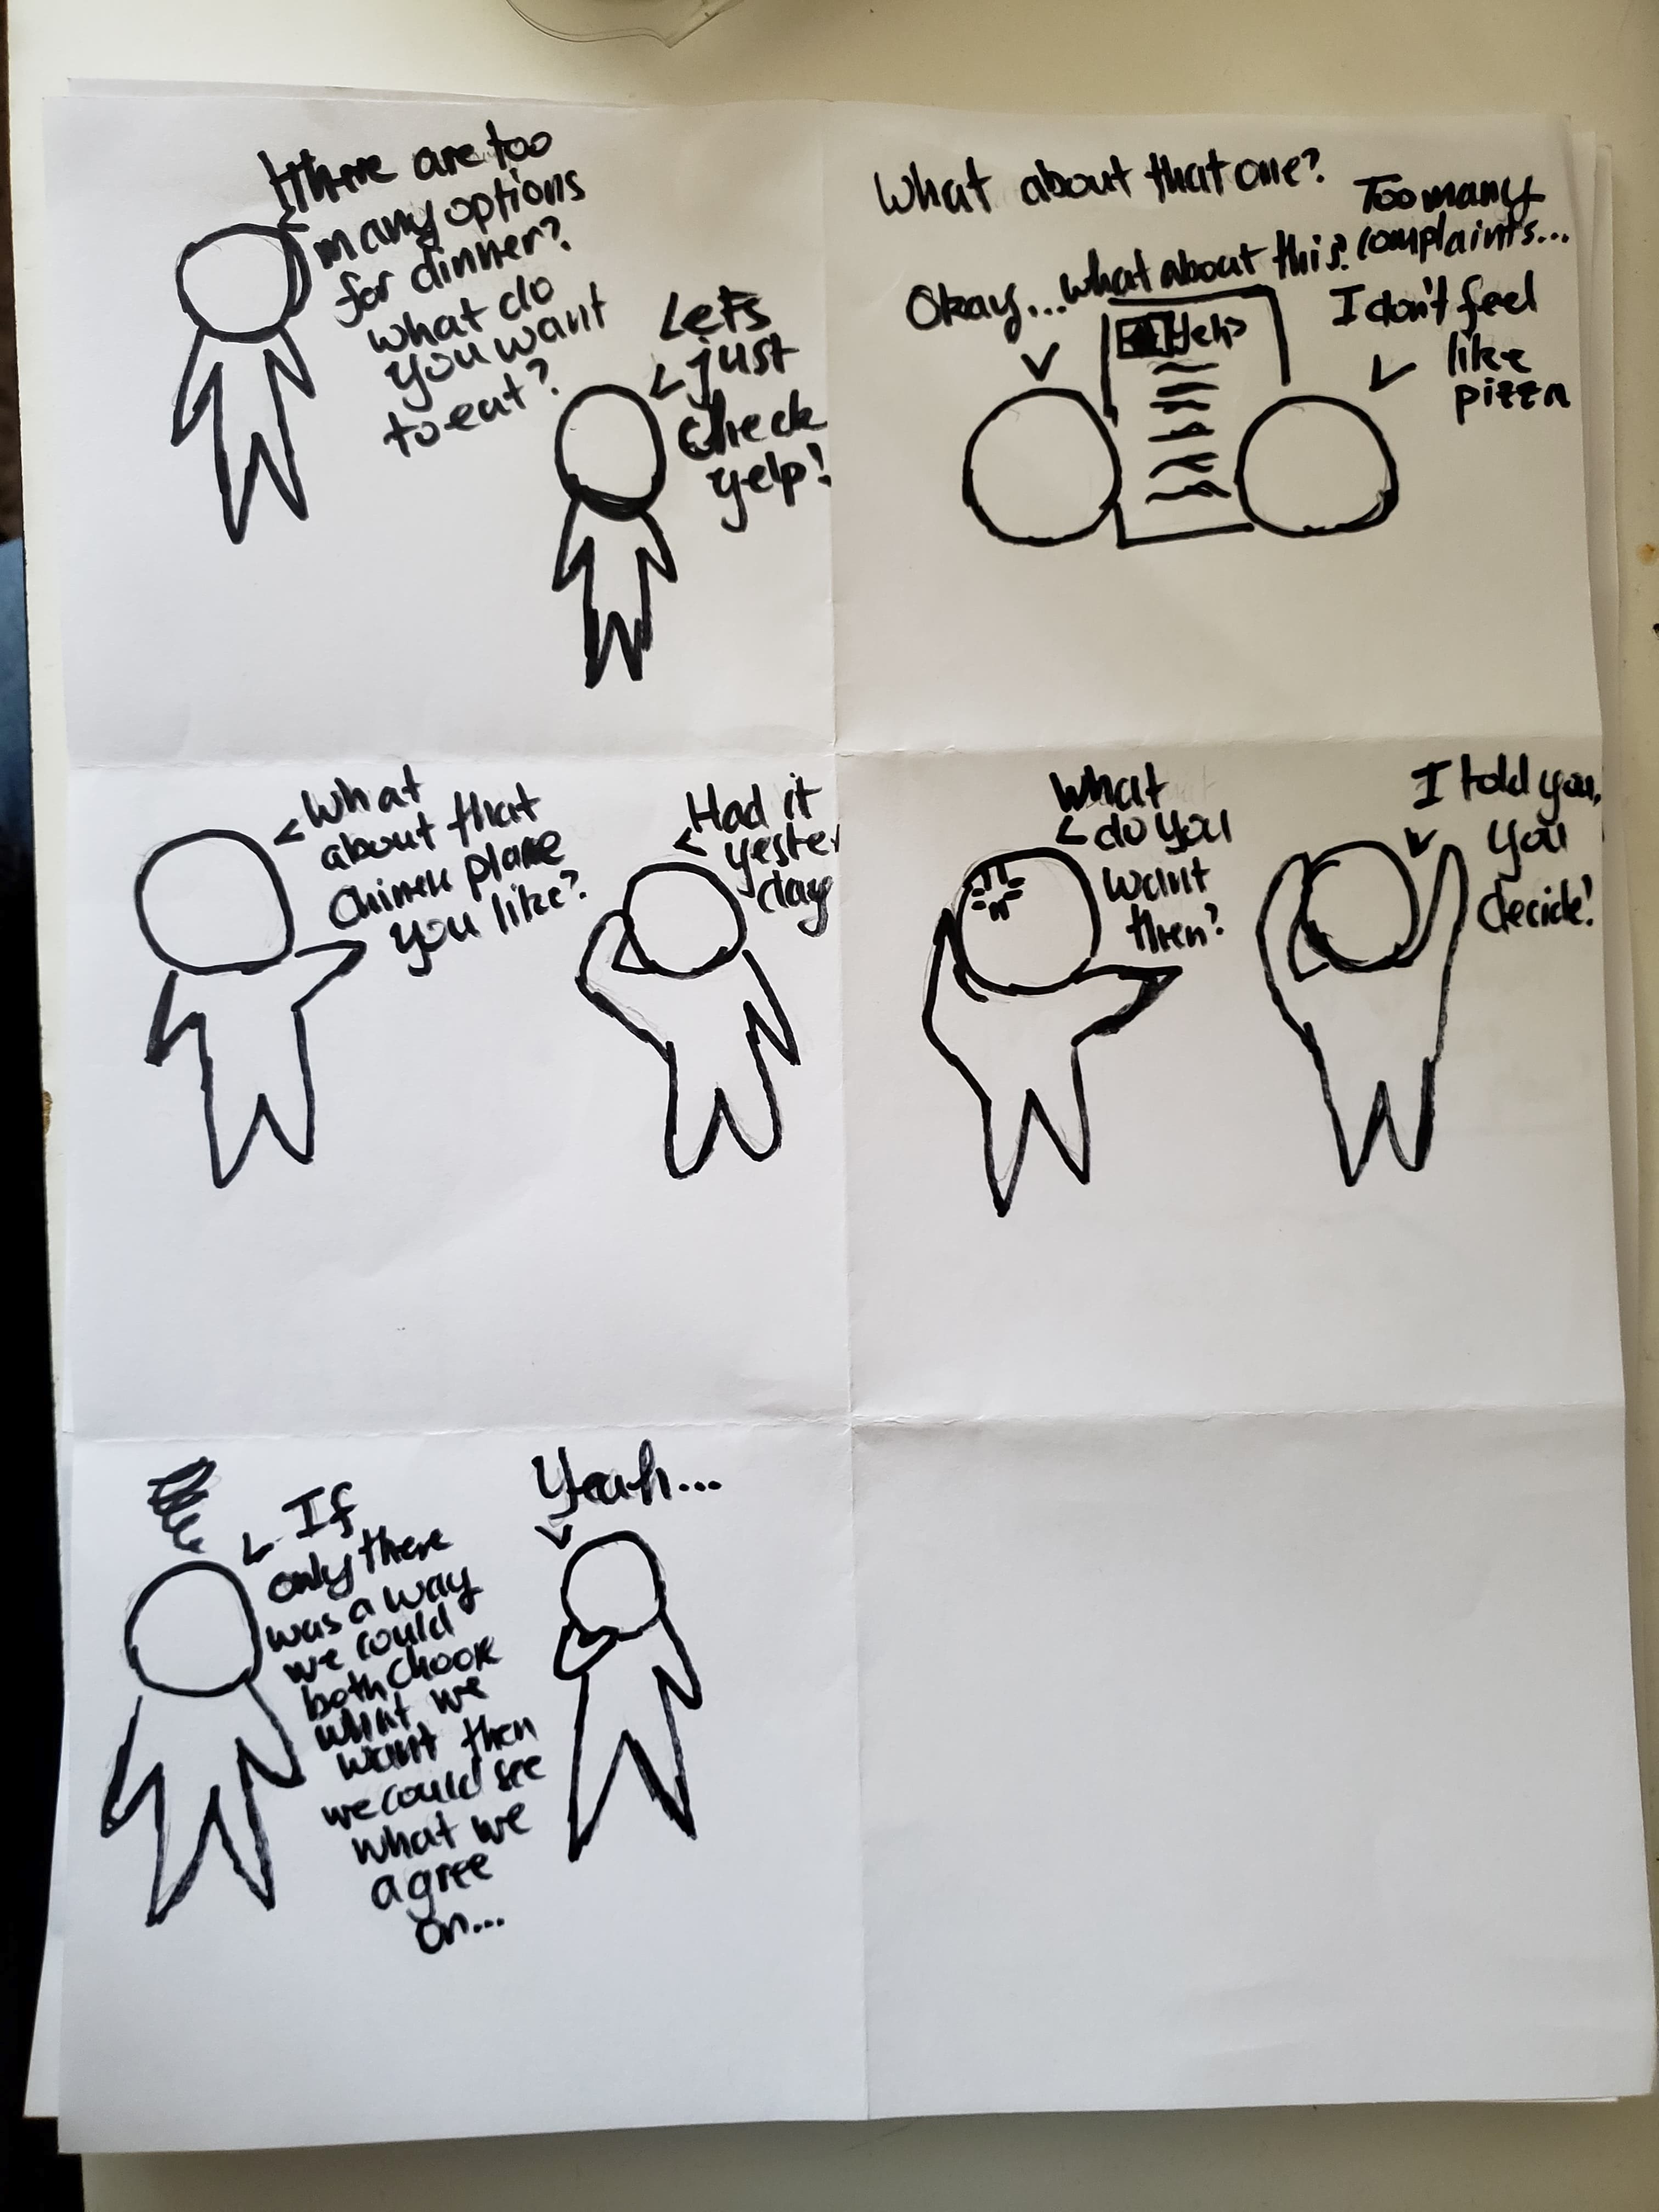 there are too
many options
for dinner?
what do
you want
to eat?
Lets
just
check
yelp!
What about that one?
Too many
complaints...
Okay... what about this?
I don't feel
like
pizza
Yelp
What
about that
you like?
Had it
yester
day
What
do you
want
then?
I told you,
you
decide!
If
only there
was a way
we could
both choose
what we
want then
we could see
what we
agree
on...
Yeah...